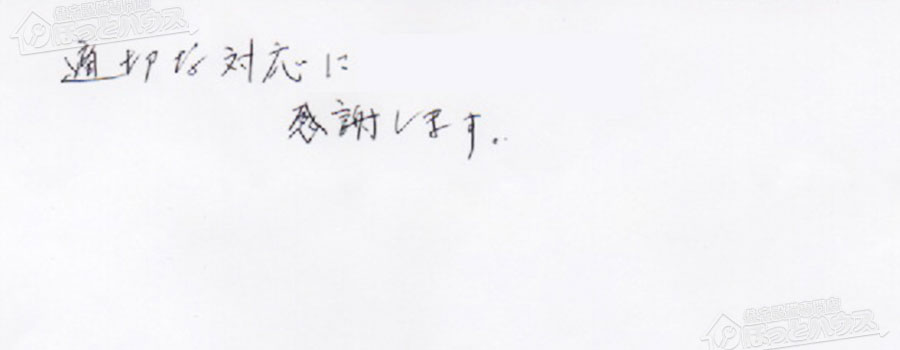 ほっとハウス
適切な対応に
感謝します。
ほっとハウス